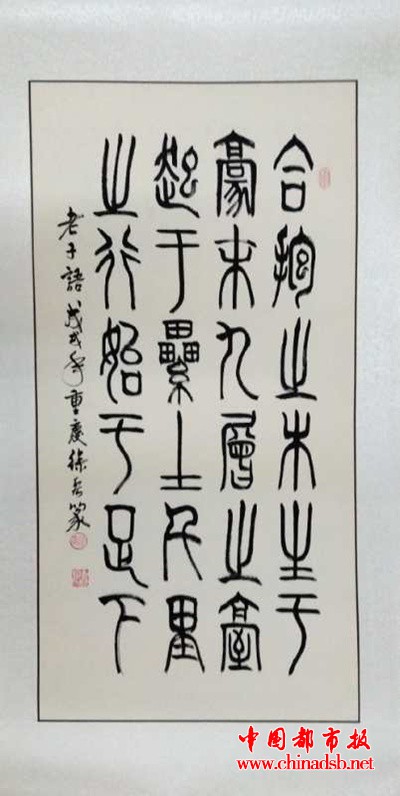 合抱之木生于
豪末九层之臺
起于纍土千里
之行始于足下
老子語戊戌年重慶徐岳篆
中国都市报
www.chinadsb.net